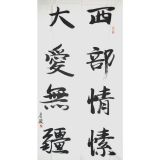 西部情愫
大愛無疆